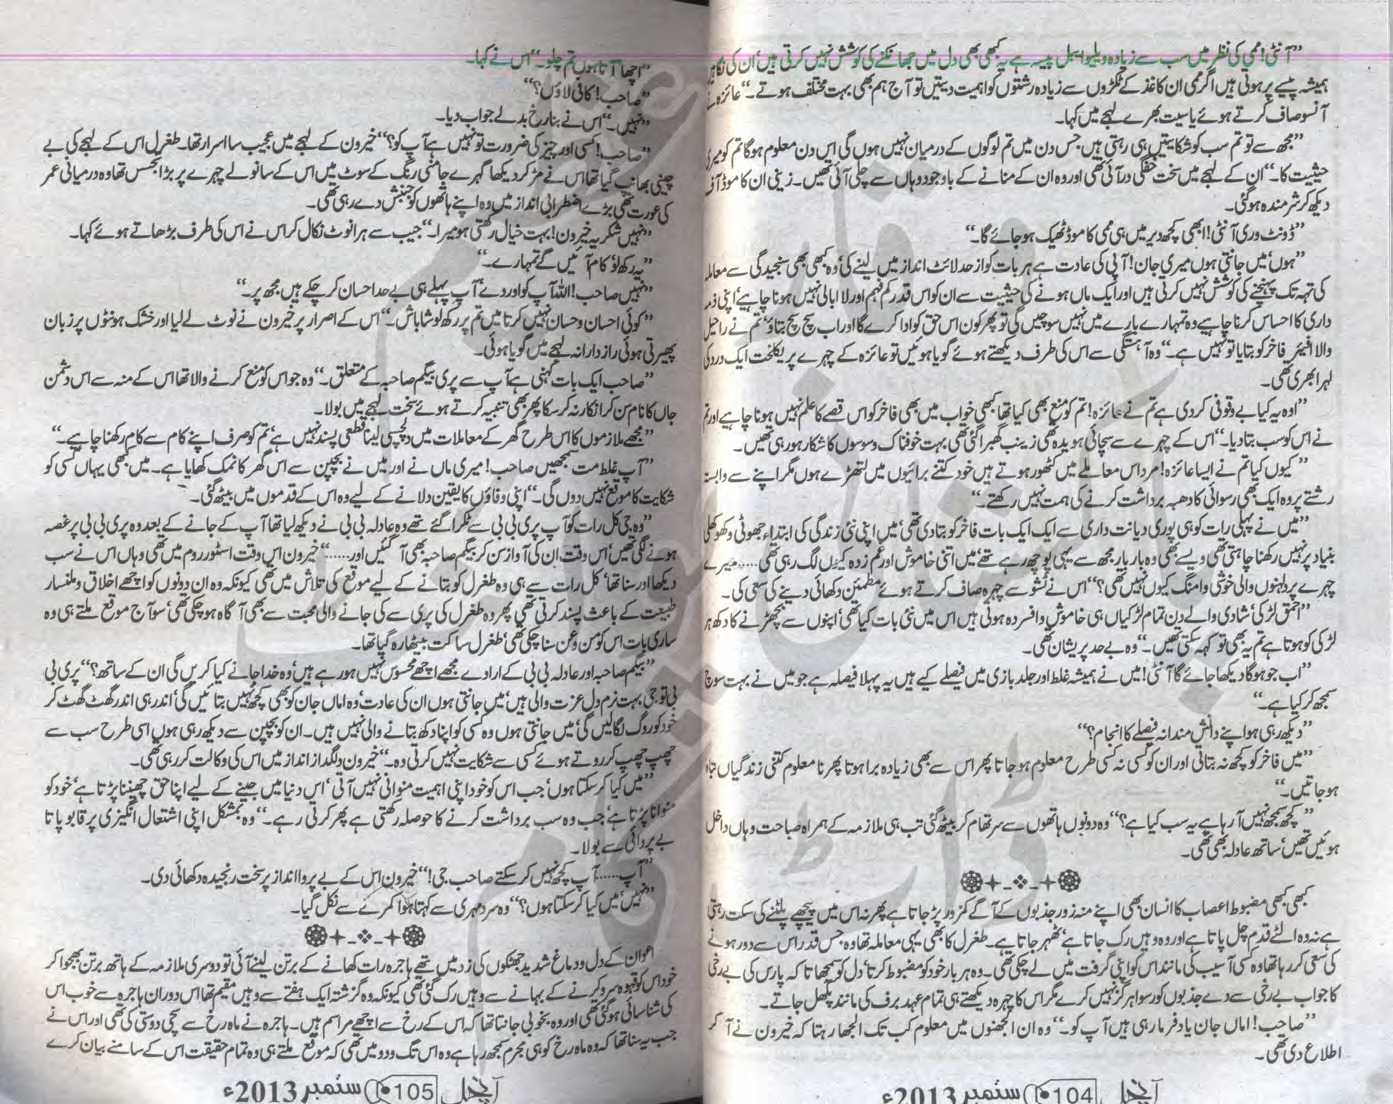 ”آنٹی! ممی کی نظر میں سب سے زیادہ ویلیو ایبل پیسہ ہے یہ کبھی بھی دل میں جھانکنے کی کوشش نہیں کرتی ہیں‘ ان کی نگاہیں
ہمیشہ پیسے پر ہوتی ہیں اگر ممی ان کاغذ کے ٹکڑوں سے زیادہ رشتوں کو اہمیت دیتیں تو آج ہم بھی بہت مختلف ہوتے۔“ عائزہ نے
آنسو صاف کرتے ہوئے یاسیت بھرے لہجے میں کہا۔
”مجھ سے تو تم سب کو شکایتیں ہی رہتی ہیں جس دن میں تم لوگوں کے درمیان نہیں ہوں گی اس دن معلوم ہوگا تم کو میری
حیثیت کا۔“ ان کے لہجے میں سخت خفگی در آئی تھی اور وہ ان کے منانے کے باوجود وہاں سے چلی آئی تھیں۔ زینی ان کا موڈ آف
دیکھ کر شرمندہ ہوگئی۔
”ڈونٹ وری آنٹی! ابھی کچھ دیر میں ہی ممی کا موڈ ٹھیک ہو جائے گا۔“
”ہوں‘ میں جانتی ہوں میری جان! آپی کی عادت ہے ہر بات کو از حد لائٹ انداز میں لینے کی‘ وہ کبھی بھی سنجیدگی سے معاملے
کی تہہ تک پہنچنے کی کوشش نہیں کرتی ہیں اور ایک ماں ہونے کی حیثیت سے ان کو اس قدر کم فہم اور لا ابالی نہیں ہونا چاہیے‘ اپنی ذمہ
داری کا احساس کرنا چاہیے وہ تمہارے بارے میں نہیں سوچیں گی تو پھر کون اس حق کو ادا کرے گا اور اب سچ سچ بتاؤ‘ تم نے راحیل
والا افیئر فاخر کو بتایا تو نہیں ہے۔“ وہ آہستگی سے اس کی طرف دیکھتے ہوئے گویا ہوئیں تو عائزہ کے چہرے پر یکلخت ایک درد کی
لہر ابھری تھی۔
”اوہ یہ کیا بے وقوفی کر دی ہے تم نے عائزہ! تم کو منع بھی کیا تھا کبھی خواب میں بھی فاخر کو اس قصے کا علم نہیں ہونا چاہیے اور تم
نے اس کو سب بتا دیا۔“ اس کے چہرے سے سچائی ہویدہ تھی زینب گھبرا گئی تھی بہت خوفناک وسوسوں کا شکار ہو رہی تھیں۔
”کیوں کیا تم نے ایسا عائزہ! مرد اس معاملے میں کٹھور ہوتے ہیں خود کتنے برائیوں میں لتھڑے ہوں مگر اپنے سے وابستہ
رشتے پر وہ ایک بھی رسوائی کا دھبہ برداشت کرنے کی ہمت نہیں رکھتے۔“
”میں نے پہلی رات کو ہی پوری دیانت داری سے ایک ایک بات فاخر کو بتا دی تھی‘ میں اپنی نئی زندگی کی ابتداء جھوٹی و کھوکھلی
بنیاد پر نہیں رکھنا چاہتی تھی ویسے بھی وہ بار بار مجھ سے یہی پوچھ رہے تھے میں اتنی خاموش اور غم زدہ کیوں لگ رہی تھی..... میرے
چہرے پر دلہنوں والی خوشی و امنگ کیوں نہیں تھی؟“ اس نے ٹشو سے چہرہ صاف کرتے ہوئے مطمئن دکھائی دینے کی سعی کی۔
”احمق لڑکی‘ شادی والے دن تمام لڑکیاں ہی خاموش و افسردہ ہوتی ہیں اس میں نئی بات کیا تھی‘ اپنوں سے بچھڑنے کا دکھ ہر
لڑکی کو ہوتا ہے تم یہ بھی تو کہہ سکتی تھیں۔“ وہ بے حد پریشان تھی۔
”اب جو ہوگا دیکھا جائے گا آنٹی! میں نے ہمیشہ غلط اور جلد بازی میں فیصلے کیے ہیں یہ پہلا فیصلہ ہے جو میں نے بہت سوچ
سمجھ کر کیا ہے۔“
”دیکھ رہی ہو اپنے دانش مندانہ فیصلے کا انجام؟“
”میں فاخر کو کچھ نہ بتاتی اور ان کو کسی نہ کسی طرح معلوم ہو جاتا پھر اس سے بھی زیادہ برا ہوتا پھر نا معلوم کتنی زندگیاں تباہ
ہو جاتیں۔“
”کچھ سمجھ نہیں آ رہا ہے یہ سب کیا ہے؟“ وہ دونوں ہاتھوں سے سر تھام کر بیٹھ گئی تب ہی ملازمہ کے ہمراہ صباحت وہاں داخل
ہوئیں تھیں‘ ساتھ عادلہ بھی تھی۔
کبھی کبھی مضبوط اعصاب کا انسان بھی اپنے منہ زور جذبوں کے آگے کمزور پڑ جاتا ہے پھر نہ اس میں پیچھے پلٹنے کی سکت رہتی
ہے نہ وہ الٹے قدم چل پاتا ہے اور وہ وہیں رک جاتا ہے‘ ٹھہر جاتا ہے۔ طغرل کا بھی یہی معاملہ تھا وہ جس قدر اس سے دور ہونے
کی سعی کر رہا تھا وہ کسی آسیب کی مانند اس کو اپنی گرفت میں لے چکی تھی۔ وہ ہر بار خود کو مضبوط کرتا‘ دل کو سمجھاتا کہ پارس کی بے رخی
کا جواب بے رخی سے دے جذبوں کو رسوا ہرگز نہیں کرے مگر اس کا چہرہ دیکھتے ہی تمام عہد برف کی مانند پگھل جاتے۔
”صاحب! اماں جان یاد فرما رہی ہیں آپ کو۔“ وہ ان الجھنوں میں معلوم کب تک الجھا رہتا کہ خیرون نے آ کر
اطلاع دی تھی۔
آنچل 104 ستمبر 2013ء
”اچھا آتا ہوں تم چلو۔“ اس نے کہا۔
”صاحب! کافی لاؤں؟“
”نہیں۔“ اس نے بنا رخ بدلے جواب دیا۔
”صاحب! کسی اور چیز کی ضرورت تو نہیں ہے آپ کو؟“ خیرون کے لہجے میں عجیب سا اسرار تھا۔ طغرل اس کے لہجے کی بے
چینی بھانپ گیا تھا اس نے مڑ کر دیکھا گہرے جامنی رنگ کے سوٹ میں اس کے سانولے چہرے پر بڑا تجسس تھا وہ درمیانی عمر
کی عورت تھی بڑے اضطرابی انداز میں وہ اپنے ہاتھوں کو جنبش دے رہی تھی۔
”نہیں شکریہ خیرون! بہت خیال رکھتی ہو میرا۔“ جیب سے ہرا نوٹ نکال کر اس نے اس کی طرف بڑھاتے ہوئے کہا۔
”یہ رکھ لو‘ کام آئیں گے تمہارے۔“
”نہیں صاحب! اللہ آپ کو اور دے‘ آپ پہلے ہی بے حد احسان کر چکے ہیں مجھ پر۔“
”کوئی احسان وحسان نہیں کرتا میں تم پر رکھ لو شاباش۔“ اس کے اصرار پر خیرون نے نوٹ لے لیا اور خشک ہونٹوں پر زبان
پھیرتی ہوئی رازدارانہ لہجے میں گویا ہوئی۔
”صاحب ایک بات کہنی ہے آپ سے پری بیگم صاحبہ کے متعلق۔“ وہ جو اس کو منع کرنے والا تھا اس کے منہ سے اس دشمن
جاں کا نام سن کر انکار نہ کر سکا پھر بھی تنبیہ کرتے ہوئے سخت لہجے میں بولا۔
”مجھے ملازموں کا اس طرح گھر کے معاملات میں دلچسپی لینا قطعی پسند نہیں ہے‘ تم کو صرف اپنے کام سے کام رکھنا چاہیے۔“
”آپ غلط مت سمجھیں صاحب! میری ماں نے اور میں نے بچپن سے اس گھر کا نمک کھایا ہے۔ میں کبھی یہاں کسی کو
شکایت کا موقع نہیں دوں گی۔“ اپنی وفاؤں کا یقین دلانے کے لیے وہ اس کے قدموں میں بیٹھ گئی۔
”وہ جی کل رات کو آپ پری بی بی سے ٹکرا گئے تھے وہ عادلہ بی بی نے دیکھ لیا تھا آپ کے جانے کے بعد وہ پری بی بی پر غصہ
ہونے لگی تھیں‘ اس وقت ان کی آواز سن کر بیگم صاحبہ بھی آ گئیں اور.....“ خیرون اس وقت اسٹور روم میں تھی وہاں اس نے سب
دیکھا اور سنا تھا‘ کل رات سے ہی وہ طغرل کو بتانے کے لیے موقع کی تلاش میں تھی کیونکہ وہ ان دونوں کو اچھے اخلاق و ملنسار
طبیعت کے باعث پسند کرتی تھی پھر وہ طغرل کی پری سے کی جانے والی محبت سے بھی آگاہ ہو چکی تھی‘ سو آج موقع ملتے ہی وہ
ساری بات اس کو من و عن سنا چکی تھی‘ طغرل ساکت بیٹھا رہ گیا تھا۔
”بیگم صاحبہ اور عادلہ بی بی کے ارادے مجھے اچھے محسوس نہیں ہو رہے ہیں‘ وہ خدا جانے کیا کریں گی ان کے ساتھ؟“ پری بی
بی تو جی بہت نرم دل عزت والی ہیں‘ میں جانتی ہوں ان کی عادت‘ وہ اماں جان کو بھی کچھ نہیں بتائیں گی‘ اندر ہی اندر گھٹ گھٹ کر
خود کو روگ لگا لیں گی‘ میں جانتی ہوں وہ کسی کو اپنا دکھ بتانے والی نہیں ہیں۔ ان کو بچپن سے دیکھ رہی ہوں اسی طرح سب سے
چھپ چھپ کر روتے ہوئے کسی سے شکایت نہیں کرتی وہ۔“ خیرون دلگداز انداز میں اس کی وکالت کر رہی تھی۔
”میں کیا کر سکتا ہوں‘ جب اس کو خود اپنی اہمیت منوانی نہیں آتی‘ اس دنیا میں جینے کے لیے اپنا حق چھیننا پڑتا ہے‘ خود کو
منوانا پڑتا ہے‘ جب وہ سب برداشت کرنے کا حوصلہ رکھتی ہے پھر کرتی رہے۔“ وہ بمشکل اپنی اشتعال انگیزی پر قابو پاتا
بے پروائی سے بولا۔
”آپ..... آپ کچھ نہیں کر سکتے صاحب جی!“ خیرون اس کے بے پروا انداز پر سخت رنجیدہ دکھائی دی۔
”نہیں‘ میں کیا کر سکتا ہوں؟“ وہ سرد مہری سے کہتا ہوا کمرے سے نکل گیا۔
اعوان کے دل و دماغ شدید جھٹکوں کی زد میں تھے ہاجرہ رات کھانے کے برتن لینے آئی تو دوسری ملازمہ کے ہاتھ برتن بھجوا کر
خود اس کو قہوہ سرو کرنے کے بہانے سے وہیں رک گئی تھی کیونکہ وہ گزشتہ ایک ہفتے سے وہیں مقیم تھا اس دوران ہاجرہ سے خوب اس
کی شناسائی ہو گئی تھی اور وہ بخوبی جانتا تھا کہ اس کے رخ سے اچھے مراسم ہیں۔ ہاجرہ نے ماہ رخ سے سچی دوستی کی تھی اور اس نے
جب یہ سنا تھا کہ وہ ماہ رخ کو ہی مجرم سمجھ رہا ہے وہ اس تگ و دو میں تھی کہ موقع ملتے ہی وہ تمام حقیقت اس کے سامنے بیان کرے
آنچل 105 ستمبر 2013ء